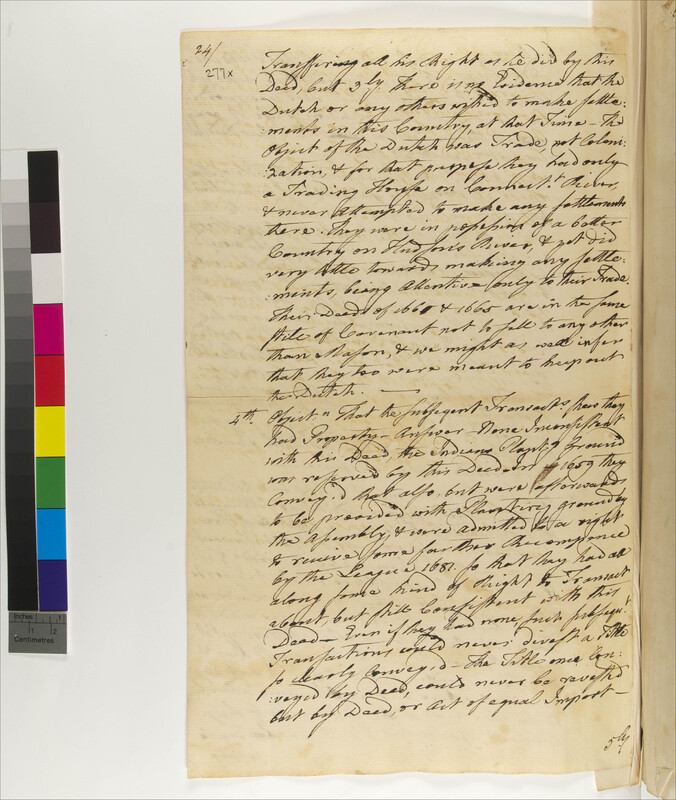 24/
277x
Transffering all his Right as he did by this
Deed, but 3ly. There is no Evidence that the
Dutch or any others wish'd to make settle:
:ments in this Country, at that Time – The
Object of the Dutch was Trade, not Coloni:
:zation, & for that purpose they had only
a Trading House on Connect.t River,
& never attempted to make any settlements
there. They were in possession of a better
Country on Hudsons River, & yet did
very little towards making any settle:
:ments, being Attentive only to their Trade.
Their Deeds of 1661 & 1665 are in the same
stile of Covenant not to sell to any other
than Mason, & we might as well infer
that they too were meant to keep out
the Dutch. —
4th. Object.n That the subsequent Transact.s shew they
had Property – Answer – None Inconsistent
with this Deed, the Indians Plant.g Ground
was reserved by this Deed 1659 they
Convey'd that also, but were afterwards
to be provided with Planting ground by
the Assembly, & were admitted to a right
to receive some farther Recompence
by the League 1681. so that they had all
along some kind of Right to Transact
about, but still Consistent with this
Deed – Even if they had none, such subsequ.t
Transactions could never divest a Title
so clearly Convey'd – The Title once Con:
:veyed by Deed, could never be revested
but by Deed, or Act of equal Import –
5ly